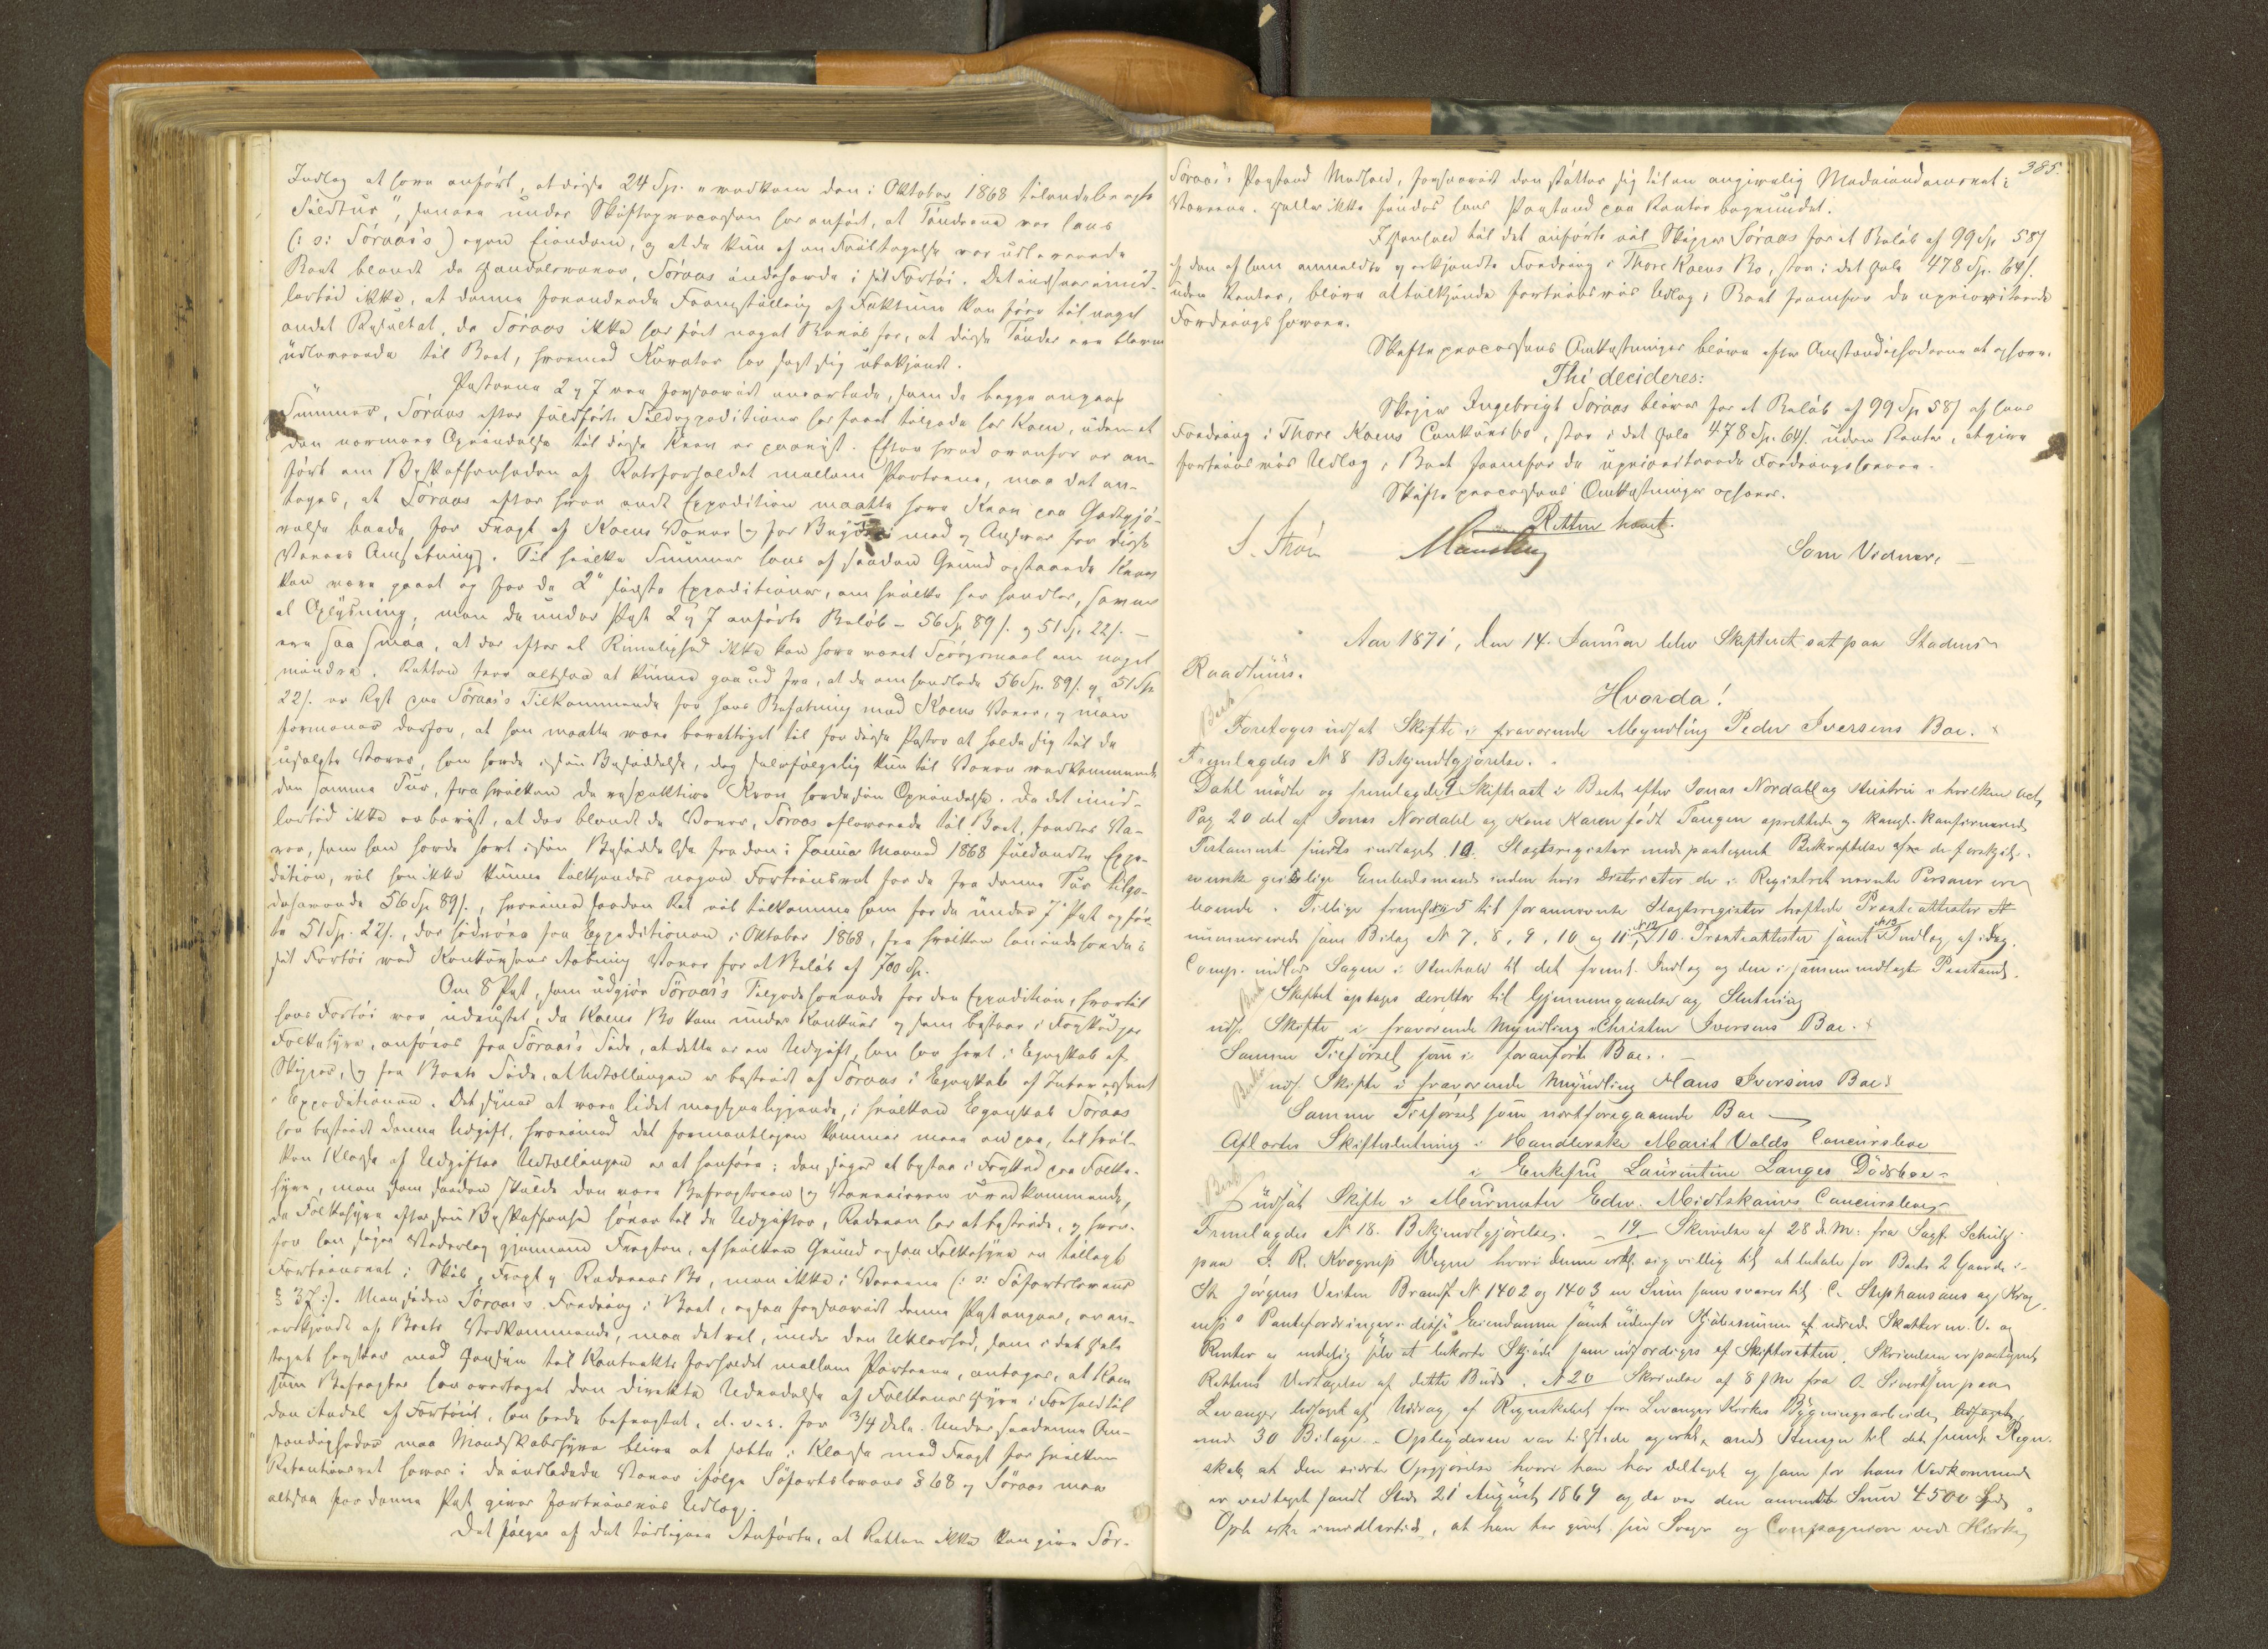 Indlæg at have anført, at disse 24 Sp. "vedkom den i Oktober 1868 tilendebragte
Sildtur", senere under Skifteprocessen har anført, at Tønderne var hans
(: o: Søraas's) egen Eiendom, og at de kun af en Feiltagelse var udleverede
Boet blandt de Handelsvarer, Søraas indehavde i sit Fartøi. Det indsees imid-
lertid ikke, at denne forandrede Fremstilling af Faktum kan føre til noget
andet Resultat, da Søraas ikke har ført noget Beviis for, at disse Tønder ere blevne
udleverede til Boet, hvormed Kurator har sagt sig ubekjendt.
Posterne 2 og 7 ere forsaavidt ensartede, som de begge angaae
Summer, Søraas efter fuldførte Sildexpeditioner har havt tilgode hos Kaen, uden at
den nærmere Oprindelse til disse Krav er paavist. Efter hvad ovenfor er an-
ført om Beskaffenheden af Retsforholdet mellem Parterne, maa det an-
tages, at Søraas efter hver endt Expedition maatte have Krav paa Godtgjø-
relse baade for Fragt af Kaens Varer og for Bryderi med og Ansvar for disse
Varers Omsætning. Til hvilke Summer hans af saadan Grund opstaaede Krav
kan være gaaet og for de 2de sidste Expeditioner, om hvilke her handles, savnes
al Oplysning, men de under Post 2 og 7 anførte Beløb - 56 Sp. 89 ß. og 51 Sp. 22 ß. -
ere saa smaa, at der efter al Rimelighed ikke kan have været Spørgsmaal om noget
mindre. Retten tør altsaa at kunne gaa ud fra, at de omhandlede 56 Sp. 89 ß. og 51 Sp.
22 ß. er Rest paa Søraas's Tilkommende for hans Befatning med Kaens Varer, og man
formener derfor, at han maatte være berettiget til for disse Poster at holde sig til de
usolgte Varer, han havde i sin Besiddelse, dog selvfølgelig kun til Varer vedkommende
den samme Tur, fra hvilken de respektive Krav havde sin Oprindelse. Da det imid-
lertid ikke er bevist, at der blandt de Varer, Søraas afleverede til Boet, fandtes Va-
rer, som han havde havt i sin Besiddelse fra den i Januar Maaned 1868 fuldendte Expe-
dition, vil han ikke kunne tilkjendes nogen Fortrinsret for de fra denne Tur tilgo-
dehavende 56 Sp. 89 ß., hvorimod saadan Ret vil tilkomme ham for de under 7 Post opfør-
te 51 Sp. 22 ß., der hidrøre fra Expeditionen i Oktober 1868, fra hvilken han indehavde i
sit Fartøi ved Konkursens Aabning Varer for et Beløb af 700 Sp.
Om 8 Post, som udgjør Søraas's Tilgodehavende for den Expedition, hvortil
hans Fartøi var udrustet, da Kaens Bo kom under Konkurs og som bestaar i Forskud paa
Folkehyre, anføres fra Søraas's Side, at dette er en Udgift, han har havt i Egenskab af
Skipper, og fra Boets Side, at Udtællingen er bestridt af Søraas i Egenskab af Interessent
i Expeditionen. Det synes at være lidet magtpaaliggende, i hvilken Egenskab Søraas
har bestridt denne Udgift, hvorimod det formentligen kommer mere an paa, til hvil-
ken Klasse af Udgifter Udtællingen er at henføre; den siges at bestaa i Forskud paa Folke-
hyre, men som saadan skulde den være Befragteren og Vareeieren uvedkommende,
da Folkehyre efter sin Beskaffenhed hører til de Udgifter, Rederen har at bestride, og hvor-
for han søger Vederlag gjennem Fragten, af hvilken Grund ogsaa Folkehyre er tillagt
Fortrinsret i Skib, Fragt og Rederens Bo, men ikke i Varerne (: o: Søfartslovens
§ 37 :). Men siden Søraas's Fordring i Boet, ogsaa forsaavidt denne Post angaar, er an-
erkjendt af Boets Vedkommende, maa det vel, under den Uklarhed, som i det Hele
taget hersker med Hensyn til Kontraktsforholdet mellem Parterne, antages, at Kaen
som Befragter har overtaget den direkte Udredelse af Folkenes Hyre i Forhold til
den Andel af Fartøiet, han havde befragtet, d. v. s. for 3/4 Dele. Under saadanne Om-
stændigheder maa Mandskabshyre blive at sætte i Klasse med Fragt for hvilken
Retentionsret haves i de indladede Varer ifølge Søfartslovens § 68 og Søraas maa
altsaa for denne Post gives fortrinsvis Udlæg.
Det følger af det tidligere Anførte, at Retten ikke kan give Sør-
385.
Søraas's Paastand Medhold, forsaavidt den støtter sig til en angivelig Medeiendomsret i
Varerne. Heller ikke findes hans Paastand paa Renter begrundet.
I Henhold til det anførte vil Skipper Søraas for et Beløb af 99 Sp 58 ß
af den af ham anmeldte og erkjendte Fordring i Thore Kaens Bo, stor i det Hele 478 Sp. 64 ß.
uden Renter, blive at tilkjende fortrinsvis Udlæg i Boet fremfor de upriviterede
Fordringshavere.
Skifteprocessens Omkostninger blive efter Omstændighederne at ophæve.
Thi decideres:
Skipper Ingebrigt Søraas bliver for et Beløb af 99 Sp 58 ß af hans
Fordring i Thore Kaens Concursbo, stor i det Hele 478 Sp. 64 ß. uden Renter, at give
fortrinsvis Udlæg i Boet fremfor de uprioriterede Fordringshavere.
Skifteprocessens Omkostninger ophæves.
Retten hævet.
Som Vidner,
Aar 1871, den 14. Januar blev Skifteret sat paa Stadens
Raadhuus.
Hvorda!
Foretoges udsat Skifte i fraværende Myndling Peder Iversens Boe.
Fremlagdes N 8 Bekjendtgjørelse.
Dahl mødte og fremlagde 9 Skifteact i Boet efter Jonas Nordahl og Hustru i hvilken Act
Pag 20 det af Jonas Nordahl og Kone Karen født Tangen oprettede og kongl. konfirmerede
Testament findes indtaget. 10. Slægtsregister med paategnet Bekræftelse af de forskjel-
lige geistlige Embedsmænd inden hvis Districter de i Registret nævnte Personer ere
boende. Tillige fremlagdes 5 til forannævnte Slægtsregister hæftede Præsteattester
nummererede som Bilag N 7, 8, 9, 10 og 11, N 12 10 Præsteattester samt N 13 Indlæg af idag.
Comp. indlod Sagen i Henhold til det freml. Indlæg og den i samme nedlagte Paastand.
Skiftet optages derefter til Gjennemgaaelse og Slutning
uds. Skifte i fraværende Myndling Christen Iversens Boe.
Samme Tilførsel som i foranførte Boe.
uds. Skifte i fraværende Myndling Hans Iversens Boe
Samme Tilførsel som næstforegaaende Boe
Afsagdes Skifteslutning i Handlerske Marit Valds Concursboe
i Enkefru Laurentine Langes Dødsboe
udsat Skifte i Muurmester Edv. Midtskaues Concursboe
Fremlagdes N 18. Bekjendtgjørelse. 19 Skrivelse af 28 d. M. fra Sagf. Schulz
paa I. R. Krogness Vegne hvori denne erkl. sig villig til at betale for Boets 2 Gaarde i
St Jørgens Veiten Brandf. N 1402 og 1403 en Sum som svarer til C. Stephansens og Krog
ness's Pantefordringer i disse Eiendomme samt udenfor Kjøbesummen at udrede Skatter m. V. og
Renter og endelig selv at bekoste Skjøde som udfærdiges af Skifteretten. Skrivelsen er paategnet
Rettens Vedtagelse af dette Bud. N 20 Skrivelse af 8 f M fra O. Sivertsen paa
Levanger ledsaget af Uddrag af Regnskabet for Levanger Kirkes Bygningsarbeide,
med 30 Bilage. Opbyderen var tilstede og erkl. med Hensyn til det fremlagte Regn-
skab, at den sidste Opgjørelse hvori han har deltaget og som for hans Vedkommende
er vedtaget fandt Sted 21 August 1869 og da var den anvendte Sum 4500 Spd
Opb. erkl. imidlertid, at han har givet sin Svoger og Compagnion ved Kirke